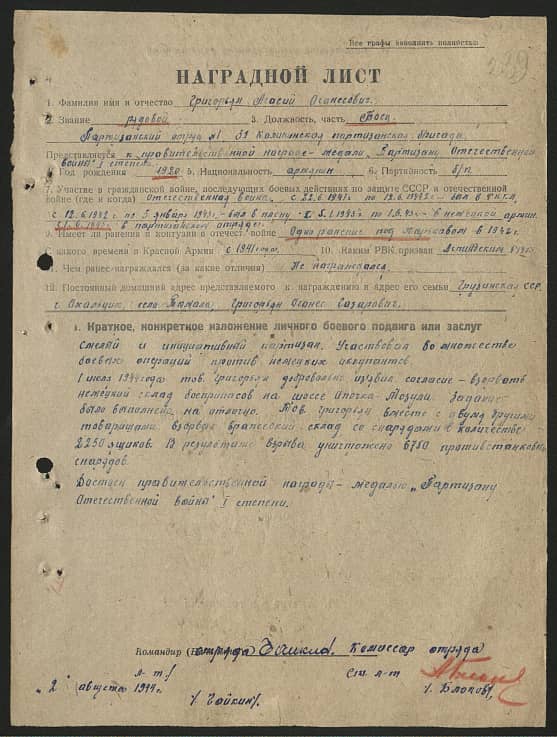 Все графы заполнять полностью
239
НАГРАДНОЙ ЛИСТ
1. Фамилия имя и отчество Григорьян Агасий Оганесович.
2. Звание рядовой. 3. Должность, часть Боец
Партизанский отряд №1 31 Калининская партизанская бригада
Представляется к правительственной награде - медали "Партизану Отечественной
войны" I степени.
Год рождения 1920 5. Национальность армянин 6. Партийность б/п
7. Участие в гражданской войне, последующих боевых действиях по защите СССР и отечественной
войне (где и когда) Отечественная война. с 22.6.1941 по 12.6.1942 - был в РККА,
с 12.6.1942 по 5 января 1943 - был в плену с 5.1.1943 по 1.6.43 - в немецкой армии.
в партизан. отряде.
9. Имеет ли ранения и контузии в отечест. войне Одно ранение под Харьковом в 1942 г.
С какого времени в Красной Армии с 1941 года. 10. Каким РВК призван
11. Чем ранее награждался (за какие отличия) Не награждался
12. Постоянный домашний адрес представляемого к награждению и адрес его семьи Грузинская ССР
г. Ахалцих, село Григорьян Оганес Сазарович.
1. Краткое, конкретное изложение личного боевого подвига или заслуг
Смелый и инициативный партизан. Участвовал во множестве
боевых операций против немецких оккупантов.
1 июля 1944 года тов. Григорьян добровольно из'явил согласие - взорвать
немецкий склад боеприпасов на шоссе Опочка-Мозули. Задание
было выполнено на отлично. Тов. Григорьян вместе с двумя другими
товарищами взорвал вражеский склад со снарядами в количестве
2250 ящиков. В результате взрыва уничтожено 6750 противотанковых
снарядов.
Достоин правительственной награды - медалью "Партизану
Отечественной войны" I степени.
Командир отряда Комиссар отряда
л-т / Ст. л-т
"2" августа 1944 г. / Чайкин / / Блохов /